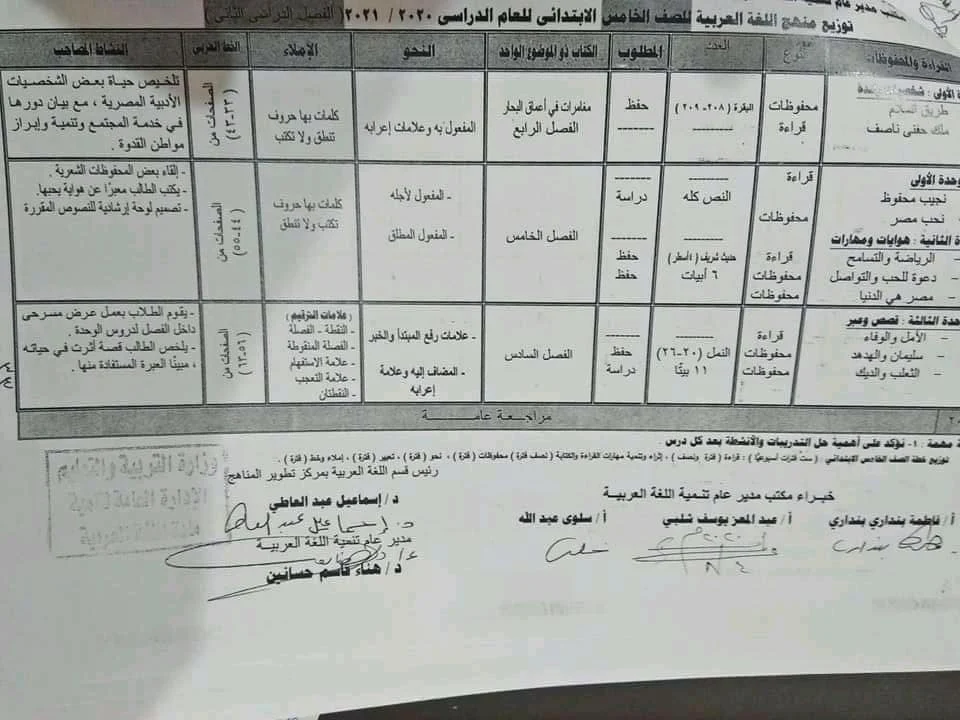 مكتب مدير عام
توزيع منهج اللغة العربية للصف الخامس الابتدائى للعام الدراسى ٢٠٢٠ / ٢٠٢١ ( الفصل الدراسى الثانى )
القراءة والمحفوظات
العدد
المطلوب
الكتاب ذو الموضوع الواحد
النحو
الإملاء
الخط العربى
النشاط المصاحب
طريق السلام
ملك حفنى ناصف
محفوظات
قراءة
البقرة (٢٠٨-٢٠٩)
--------
حفظ
-------
مغامرات في أعماق البحار
الفصل الرابع
المفعول به وعلامات إعرابه
كلمات بها حروف
تنطق ولا تكتب
الصفحات من
(٣٣-٤٣)
تلخيص حياة بعض الشخصيات
الأدبية المصرية ، مع بيان دورها
في خدمة المجتمع وتنمية وإبراز
مواطن القدوة .
وحدة الأولى
نجيب محفوظ
نحب مصر
ة الثانية : هوايات ومهارات
– الرياضة والتسامح
– دعوة للحب والتواصل
– مصر هي الدنيا
قراءة
محفوظات
قراءة
محفوظات
محفوظات
--------
النص كله
--------
حديث شريف (٤أسطر)
٦ أبيات
-------
دراسة
-------
حفظ
حفظ
الفصل الخامس
- المفعول لأجله
- المفعول المطلق
كلمات بها حروف
تكتب ولا تنطق
الصفحات من
(٤٤-٥٥)
- إلقاء بعض المحفوظات الشعرية .
- يكتب الطالب معبرًا عن هواية يحبها.
- تصميم لوحة إرشادية للنصوص المقررة
حدة الثالثة : قصص وعبر
– الأمل والوفاء
– سليمان والهدهد
– الثعلب والديك
قراءة
محفوظات
محفوظات
--------
النمل (٢٠-٢٦)
١١ بيتًا
-------
حفظ
دراسة
الفصل السادس
- علامات رفع المبتدأ والخبر
- المضاف إليه وعلامة
إعرابه
(علامات الترقيم)
- النقطة - الفصلة
- الفصلة المنقوطة
- علامة الاستفهام
- علامة التعجب
- النقطتان
الصفحات من
(٥٦-٦٣)
- يقوم الطلاب بعمل عرض مسرحى
داخل الفصل لدروس الوحدة .
- يلخص الطالب قصة أثرت في حياته
، مبينًا العبرة المستفادة منها .
مراجعة عامـــــة
ة مهمة : ١- نؤكد على أهمية حل التدريبات والأنشطة بعد كل درس .
توزيع خطة الصف الخامس الابتدائى : ( ست فترات أسبوعيًا ) : قراءة ( فترة ونصف ) ، إثراء وتنمية مهارات القراءة والكتابة ( نصف فترة ) محفوظات ( فترة ) ، نحو ( فترة ) ، تعبير ( فترة ) ، إملاء وخط ( فترة )
رئيس قسم اللغة العربية بمركز تطوير المناهج
خبراء مكتب مدير عام تنمية اللغة العربية
د/ إسماعيل عبد العاطي
أ/ فاطمة بنداري بنداري
أ/ عبد المعز يوسف شلبي
أ/ سلوى عبد الله
مدير عام تنمية اللغة العربية
د/ هناء قاسم حسانين
وزارة التربية والتعليم